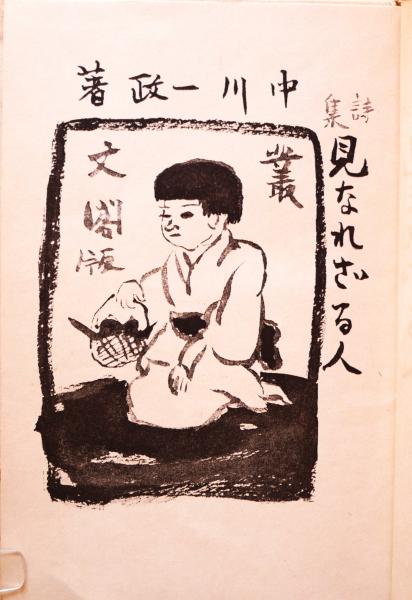 詩集
見なれざる人
中川一政著
叢
文閣版